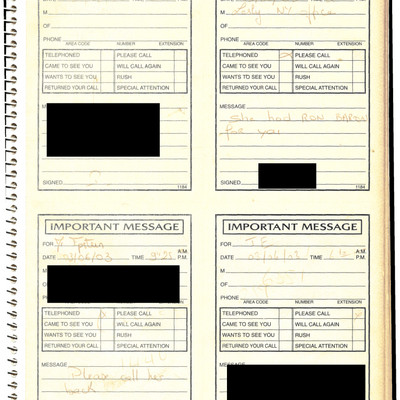 DATE TIME P.M.
M
OF
PHONE
AREA CODE NUMBER EXTENSION
TELEPHONED PLEASE CALL
CAME TO SEE YOU WILL CALL AGAIN
WANTS TO SEE YOU RUSH
RETURNED YOUR CALL SPECIAL ATTENTION
MESSAGE
SIGNED 1184
M
OF
PHONE
AREA CODE NUMBER EXTENSION
TELEPHONED x PLEASE CALL
CAME TO SEE YOU WILL CALL AGAIN
WANTS TO SEE YOU RUSH
RETURNED YOUR CALL SPECIAL ATTENTION
MESSAGE
She had RON
for you
SIGNED 1184
IMPORTANT MESSAGE
FOR
A.M.
DATE 03/06/03 TIME P.M.
M
OF
PHONE
AREA CODE NUMBER EXTENSION
TELEPHONED x PLEASE CALL
CAME TO SEE YOU WILL CALL AGAIN
WANTS TO SEE YOU RUSH
RETURNED YOUR CALL SPECIAL ATTENTION
MESSAGE
Please call her
back
IMPORTANT MESSAGE
FOR J.E
A.M.
DATE 03/06/03 TIME P.M.
M
OF
PHONE
AREA CODE NUMBER EXTENSION
TELEPHONED PLEASE CALL x
CAME TO SEE YOU WILL CALL AGAIN
WANTS TO SEE YOU RUSH
RETURNED YOUR CALL SPECIAL ATTENTION
MESSAGE